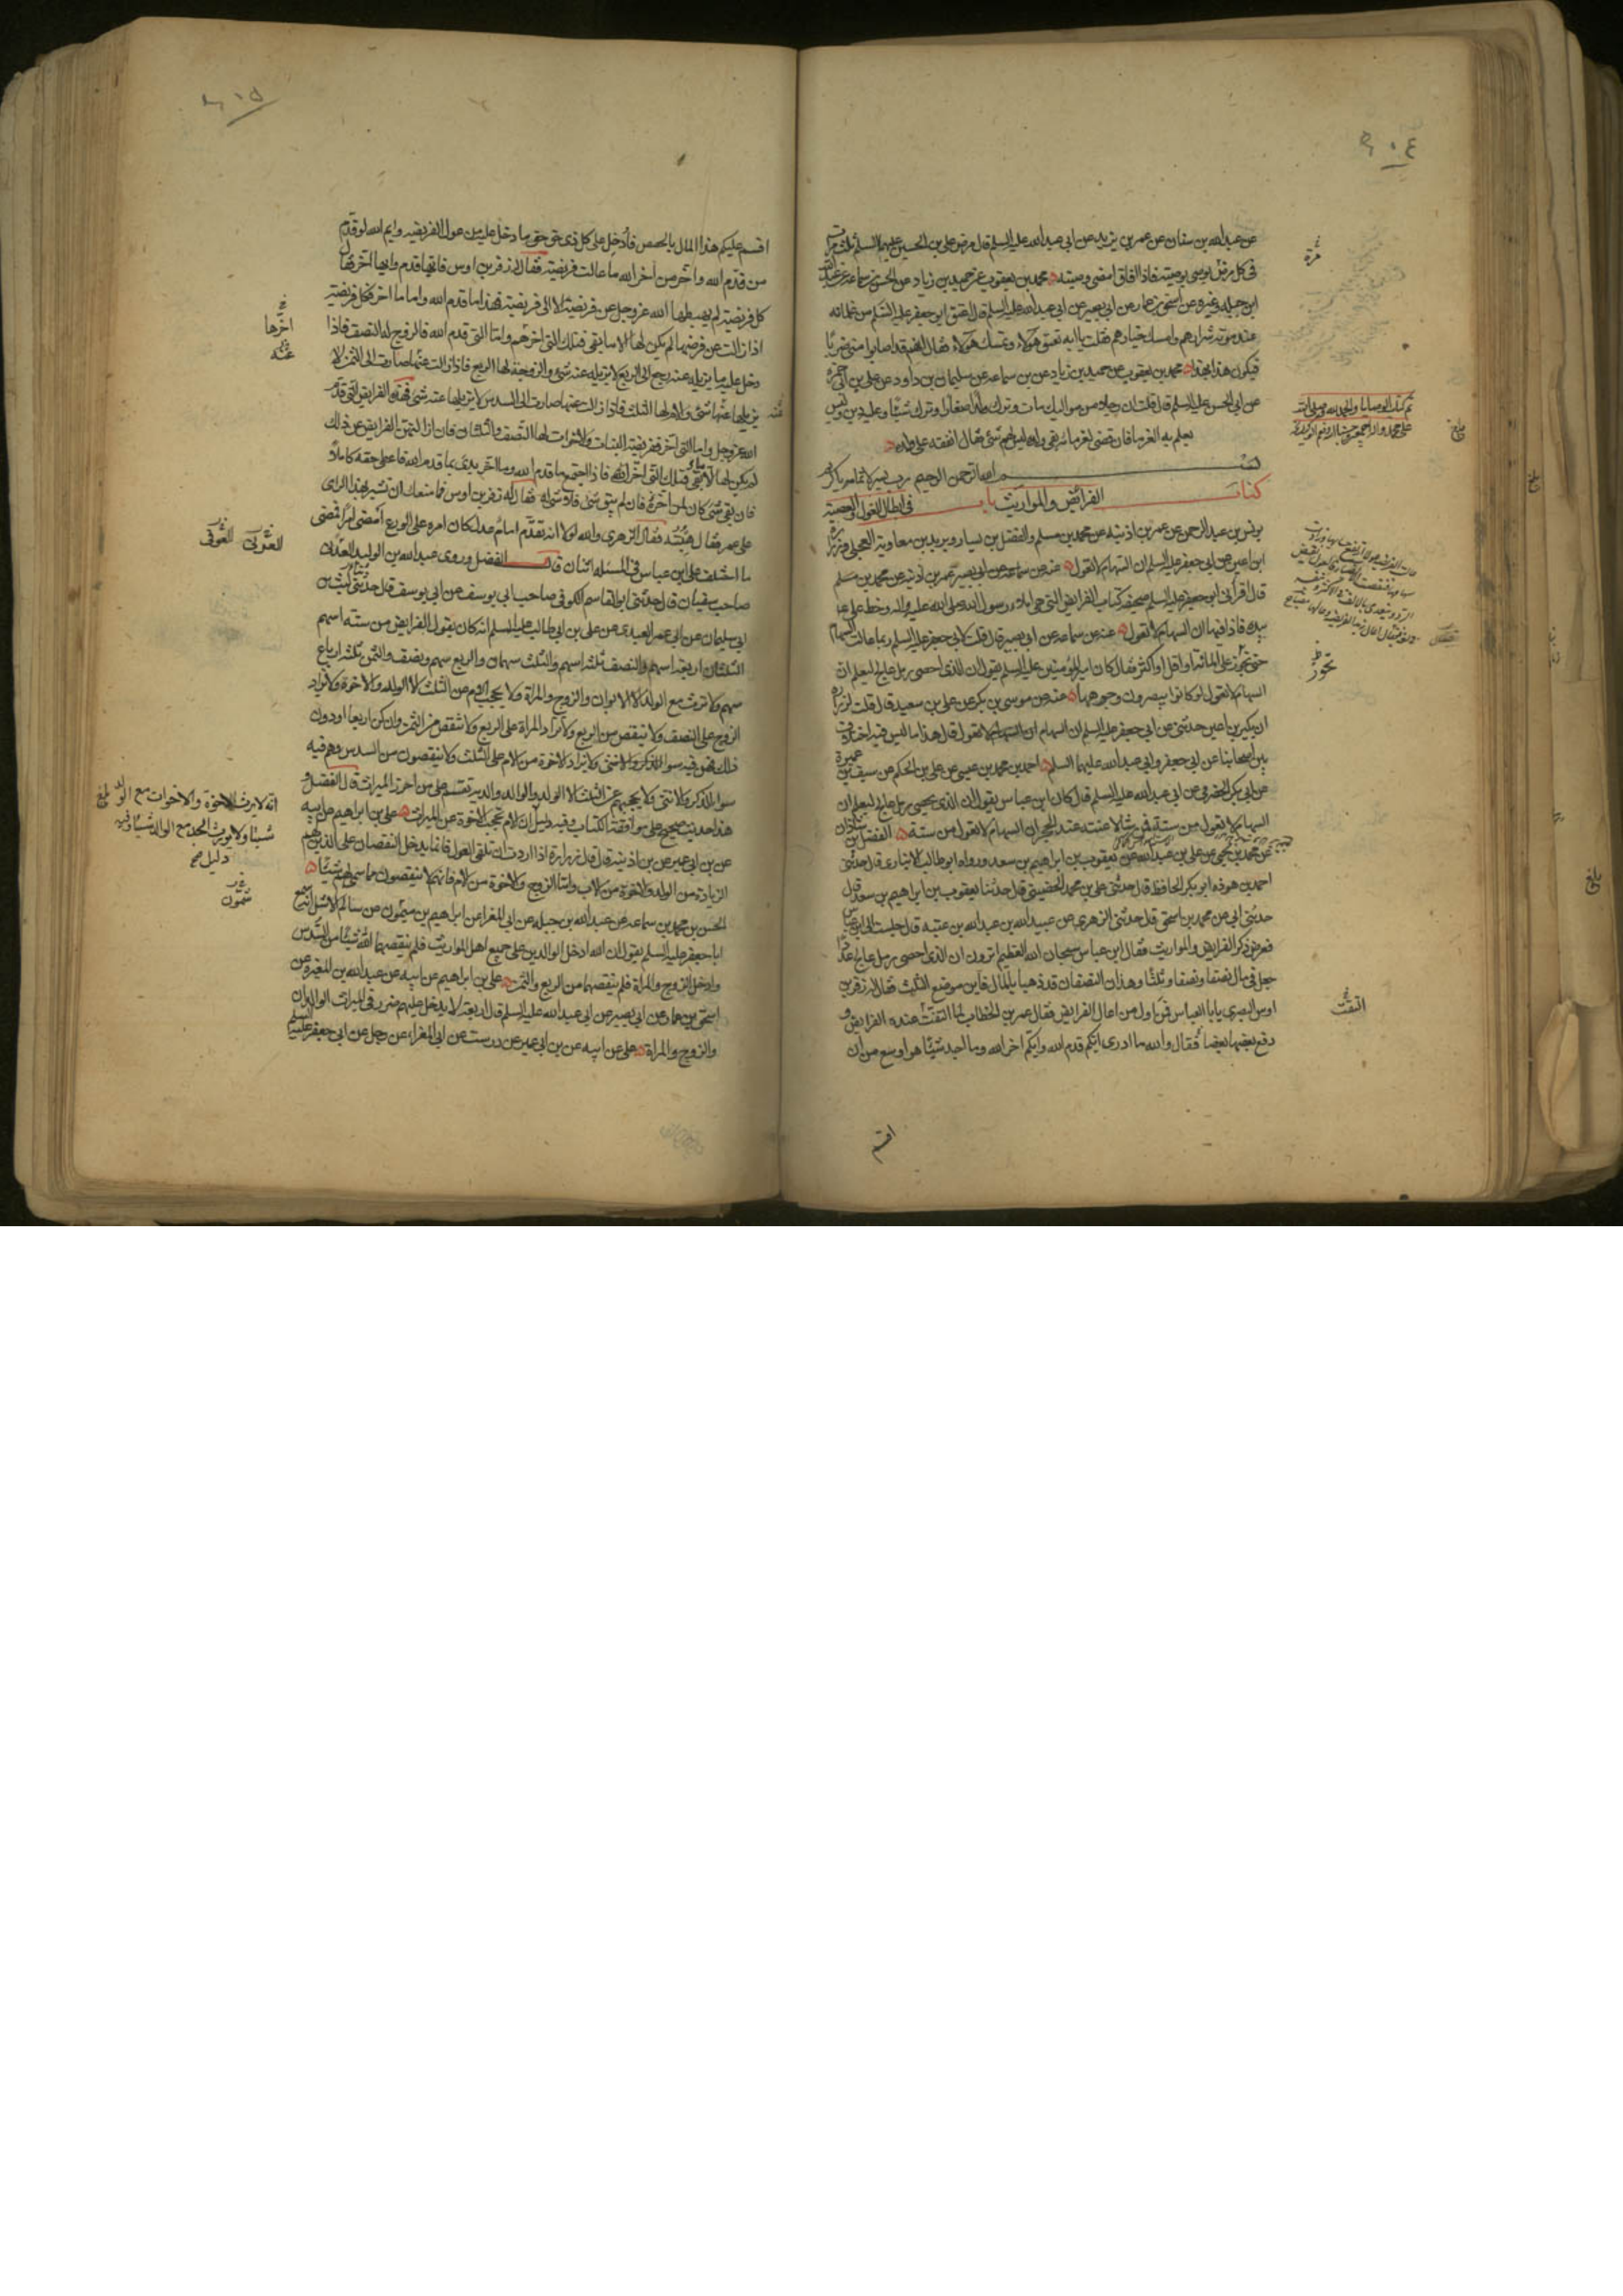 ٤
عن عبدالله بن سنان عن عمر بن يزيد عن ابى عبدالله عليه السلم قال مرض على بن الحسين عليهما السلم ثلث
فى كل مرض يوصى بوصيته فاذا افاق امضى وصيته محمد بن يعقوب عن حميد بن زياد عن الحسن بن سماعه عن عبدالله
ابن جبله وغيره عن اسحق بن عمار عن ابى بصير عن ابى عبدالله عليه السلم قال اعتق ابو جعفر عليه السلم من غلمانه
عند موته شرارهم وامسك خيارهم فقلت يا ابه تعتق هؤلاء وتمسك هؤلاء فقال انهم قد اصابوا منى ضربا
فيكون هذا بهذا محمد بن يعقوب عن حميد بن زياد عن بن سماعه عن سليمان بن داود عن على بن ابى حمزه
عن ابى الحسن عليه السلم قال قلت ان رجلا من مواليك مات وترك ولدا صغارا وترك شيئا وعليه دين وليس
يعلم به الغرما فان قضى لغرمائه بقى ولده ليس لهم شئ فقال انفقه على ولده
بسم الله الرحمن الرحيم رب يسر
كتاب الفرائض والمواريث باب فى ابطال العول والعصبة
يونس بن عبدالرحمن عن عمر بن اذنيه عن محمد بن مسلم والفضل بن يسار وبريد بن معاوية العجلى وزرارة
ابن اعين عن ابى جعفر عليه السلم ان السهام لا تعول عنه عن سماعه عن ابى بصير عمر بن اذنيه عن محمد بن مسلم
قال اقرأنى ابو جعفر عليه السلم صحيفه كتاب الفرايض التى هى املاء رسول الله صلى الله عليه واله وخط على ع
بيده فاذا فيها ان السهام لا تعول عنه عن سماعه عن ابى بصير قال قلت لابى جعفر عليه السلم ربما عالت السهام
حتى تجوز على المائة او اقل او اكثر فقال كان امير المؤمنين عليه السلم يقول ان الذى احصى رمل عالج ليعلم ان
السهام لا تعول لو كانوا يبصرون وجوهها عنه عن موسى بن بكر عن على بن سعيد قال قلت لزرارة
ان بكير بن اعين حدثنى عن ابى جعفر عليه السلم ان السهام لا تعول قال هذا ما ليس فيه اختلاف
بين اصحابنا عن ابى جعفر وابى عبدالله عليهما السلم احمد بن محمد بن عيسى عن على بن الحكم عن سيف بن عميرة
عن ابى بكر الحضرمى عن ابى عبدالله عليه السلم قال كان ابن عباس يقول ان الذى يحصى رمل عالج ليعلم ان
السهام لا تعول من ستة فمن شاء لاعنته عند الحجر ان السهام لا تعول من ستة الفضل بن شاذان
عن محمد بن يحيى عن على بن عبدالله عن يعقوب بن ابراهيم بن سعد ورواه ابو طالب الانبارى قال حدثنى
احمد بن هوذه ابو بكر الحافظ قال حدثنى على بن محمد الحضينى قال حدثنا يعقوب بن ابراهيم بن سعد قال
حدثنى ابى عن محمد بن اسحق قال حدثنى الزهرى عن عبيدالله بن عبدالله بن عتبه قال جلست الى ابن عباس
فعرض ذكر الفرايض والمواريث فقال ابن عباس سبحان الله العظيم اترون ان الذى احصى رمل عالج عددا
جعل فى مال نصفا ونصفا وثلثا وهذان النصفان قد ذهبا بالمال فاين موضع الثلث فقال له زفر بن
اوس البصرى يا ابا العباس فمن اول من اعال الفرايض فقال عمر بن الخطاب لما التفت عنده الفرايض و
دفع بعضها بعضا فقال والله ما ادرى ايكم قدم الله وايكم اخر الله وما اجد شيئا هو اوسع من ان
اقسم
مرة
تم كتاب الوصايا والحمد لله وصلى الله
بلغ
تجوز
التفت
٦١٥
اقسم عليكم هذا المال بالحصص فادخل على كل ذى حق حق ما دخل عليه من عول الفريضه وايم الله لو قدم
من قدم الله واخر من اخر الله ما عالت فريضته فقال له زفر بن اوس فايها قدم وايها اخر فقال
كل فريضته لم يهبطها الله عزوجل عن فريضته الا الى فريضته فهذا ما قدم الله واما ما اخر فكل فريضته
اذا زالت عن فرضها لم يكن لها الا ما بقى فتلك التى اخر واما التى قدم الله فالزوج له النصف فاذا
دخل عليه ما يزيله عنه رجع الى الربع لا يزيله عنه شئ والزوجة لها الربع فاذا زالت عنها صارت الى الثمن لا
يزيلها عنها شئ والام لها الثلث فاذا زالت عنها صارت الى السدس لا يزيلها عنه شئ فهذه الفرايض التى قدم
الله عزوجل واما التى اخر ففريضة البنات والاخوات لها النصف والثلثان فان ازالتهن الفرايض عن ذلك
لم يكن لها الا ما بقى فتلك التى اخر الله فاذا اجتمع ما قدم الله وما اخر بدئ بما قدم الله فاعطى حقه كاملا
فان بقى شئ كان لمن اخر فان لم يبق شئ فلا شئ له فقال له زفر بن اوس فما منعك ان تشير بهذا الراى
على عمر فقال هبته فقال الزهرى والله لولا انه تقدم امام عدل كان امره على الورع امضى امرا فمضى
ما اختلف على ابن عباس فى المسئله اثنان قال الفضل وروى عبدالله بن الوليد العدنى
صاحب سفيان قال حدثنى ابو القاسم الكوفى صاحب ابى يوسف عن ابى يوسف قال حدثنى ليث بن
ابى سليمان عن ابى عمر العبدى عن على بن ابى طالب عليه السلم انه كان يقول الفرايض من سته اسهم
الثلثان اربعة اسهم والنصف ثلثة اسهم والثلث سهمان والربع سهم ونصف والثمن ثلثه ارباع
سهم ولا يرث مع الولد الا الابوان والزوج والمراة ولا يحجب الام عن الثلث الا الولد والاخوة ولا يزاد
الزوج على النصف ولا ينقص من الربع ولا تزاد المراة على الربع ولا تنقص من الثمن وان كن اربعا او دون
ذلك فهن فيه سواء ولا يزاد الاخوة من الام على الثلث ولا ينقصون من السدس وهم فيه
سواء الذكر والانثى ولا يحجبهم عن الثلث الا الولد والوالد والديه تقسم على من احرز الميراث قال الفضل و
هذا حديث صحيح على موافقة الكتاب وفيه دليل ان الام تحجب الاخوة عن الميراث على بن ابراهيم عن ابيه
عن بن ابى عمير عن بن اذنيه قال قال زرارة اذا اردت ان تلقى العول فانما يدخل النقصان على الذين لهم
الزيادة من الولد والاخوة من الاب واما الزوج والاخوة من الام فانهم لا ينقصون مما سمى لهم شيئا
الحسن بن محمد بن سماعه عن عبدالله بن جبله عن ابى المغرا عن ابراهيم بن ميمون عن سالم الاشل انه سمع
ابا جعفر عليه السلم يقول ان الله ادخل الوالدين على جميع اهل المواريث فلم ينقصهما الله شيئا من السدس
وادخل الزوج والمراة فلم ينقصهما من الربع والثمن على بن ابراهيم عن ابيه عن عبدالله بن المغيره عن
اسحق بن عمار عن ابى بصير عن ابى عبدالله عليه السلم قال اربعة لا يدخل عليهم ضرر فى الميراث الوالدان
والزوج والمراة على عن ابيه عن بن ابى عمير عن درست عن ابى المغراء عن رجل عن ابى جعفر عليه السلم
اخرها
عنه
العوفى
انه لا يرث الاخوة والاخوات مع الولد
شيئا ولا يورث الجد مع الولد شيئا وفيه
دليل صح